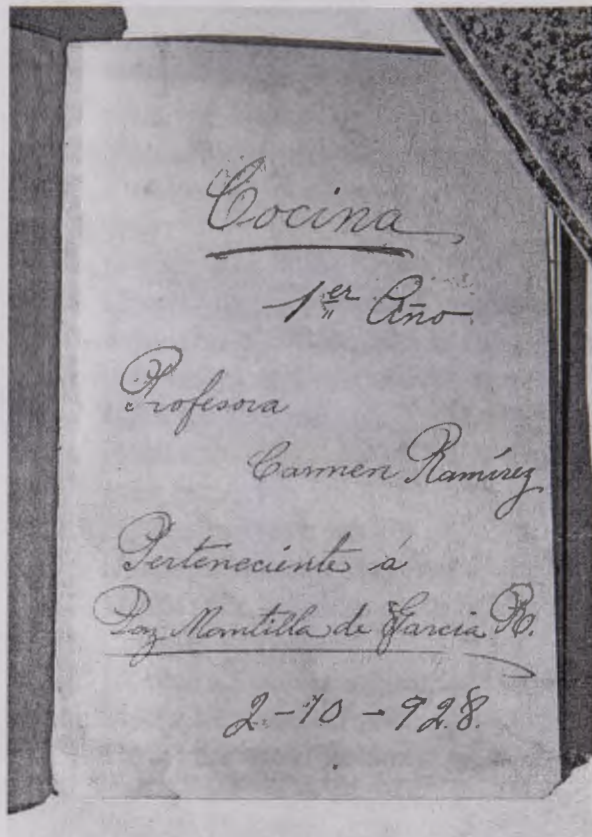 Cocina
1er Año
Profesora
Carmen Ramírez
Perteneciente á
Paz Mantilla de Garcia R.
2-10-928.